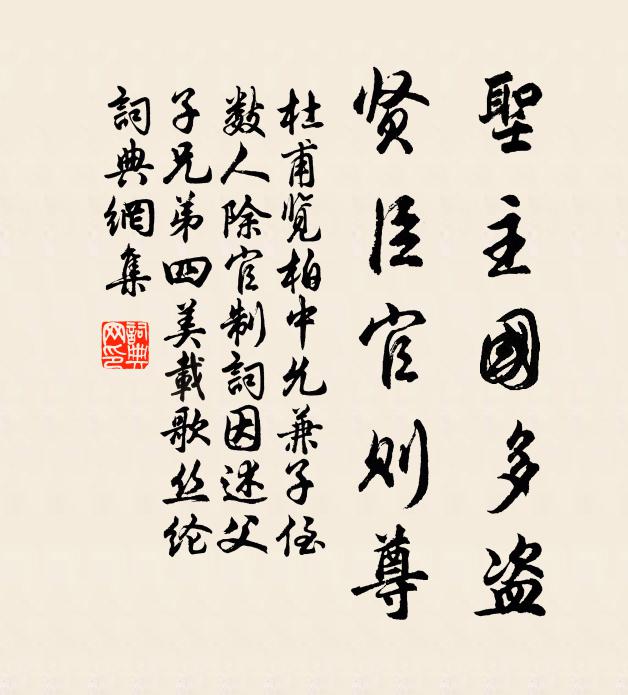 聖主國多盜
贤臣官则尊
杜甫览柏中允兼子侄
数人除官制詞因述父
子兄弟四美載歌丝纶
詞典網集
詞典网印